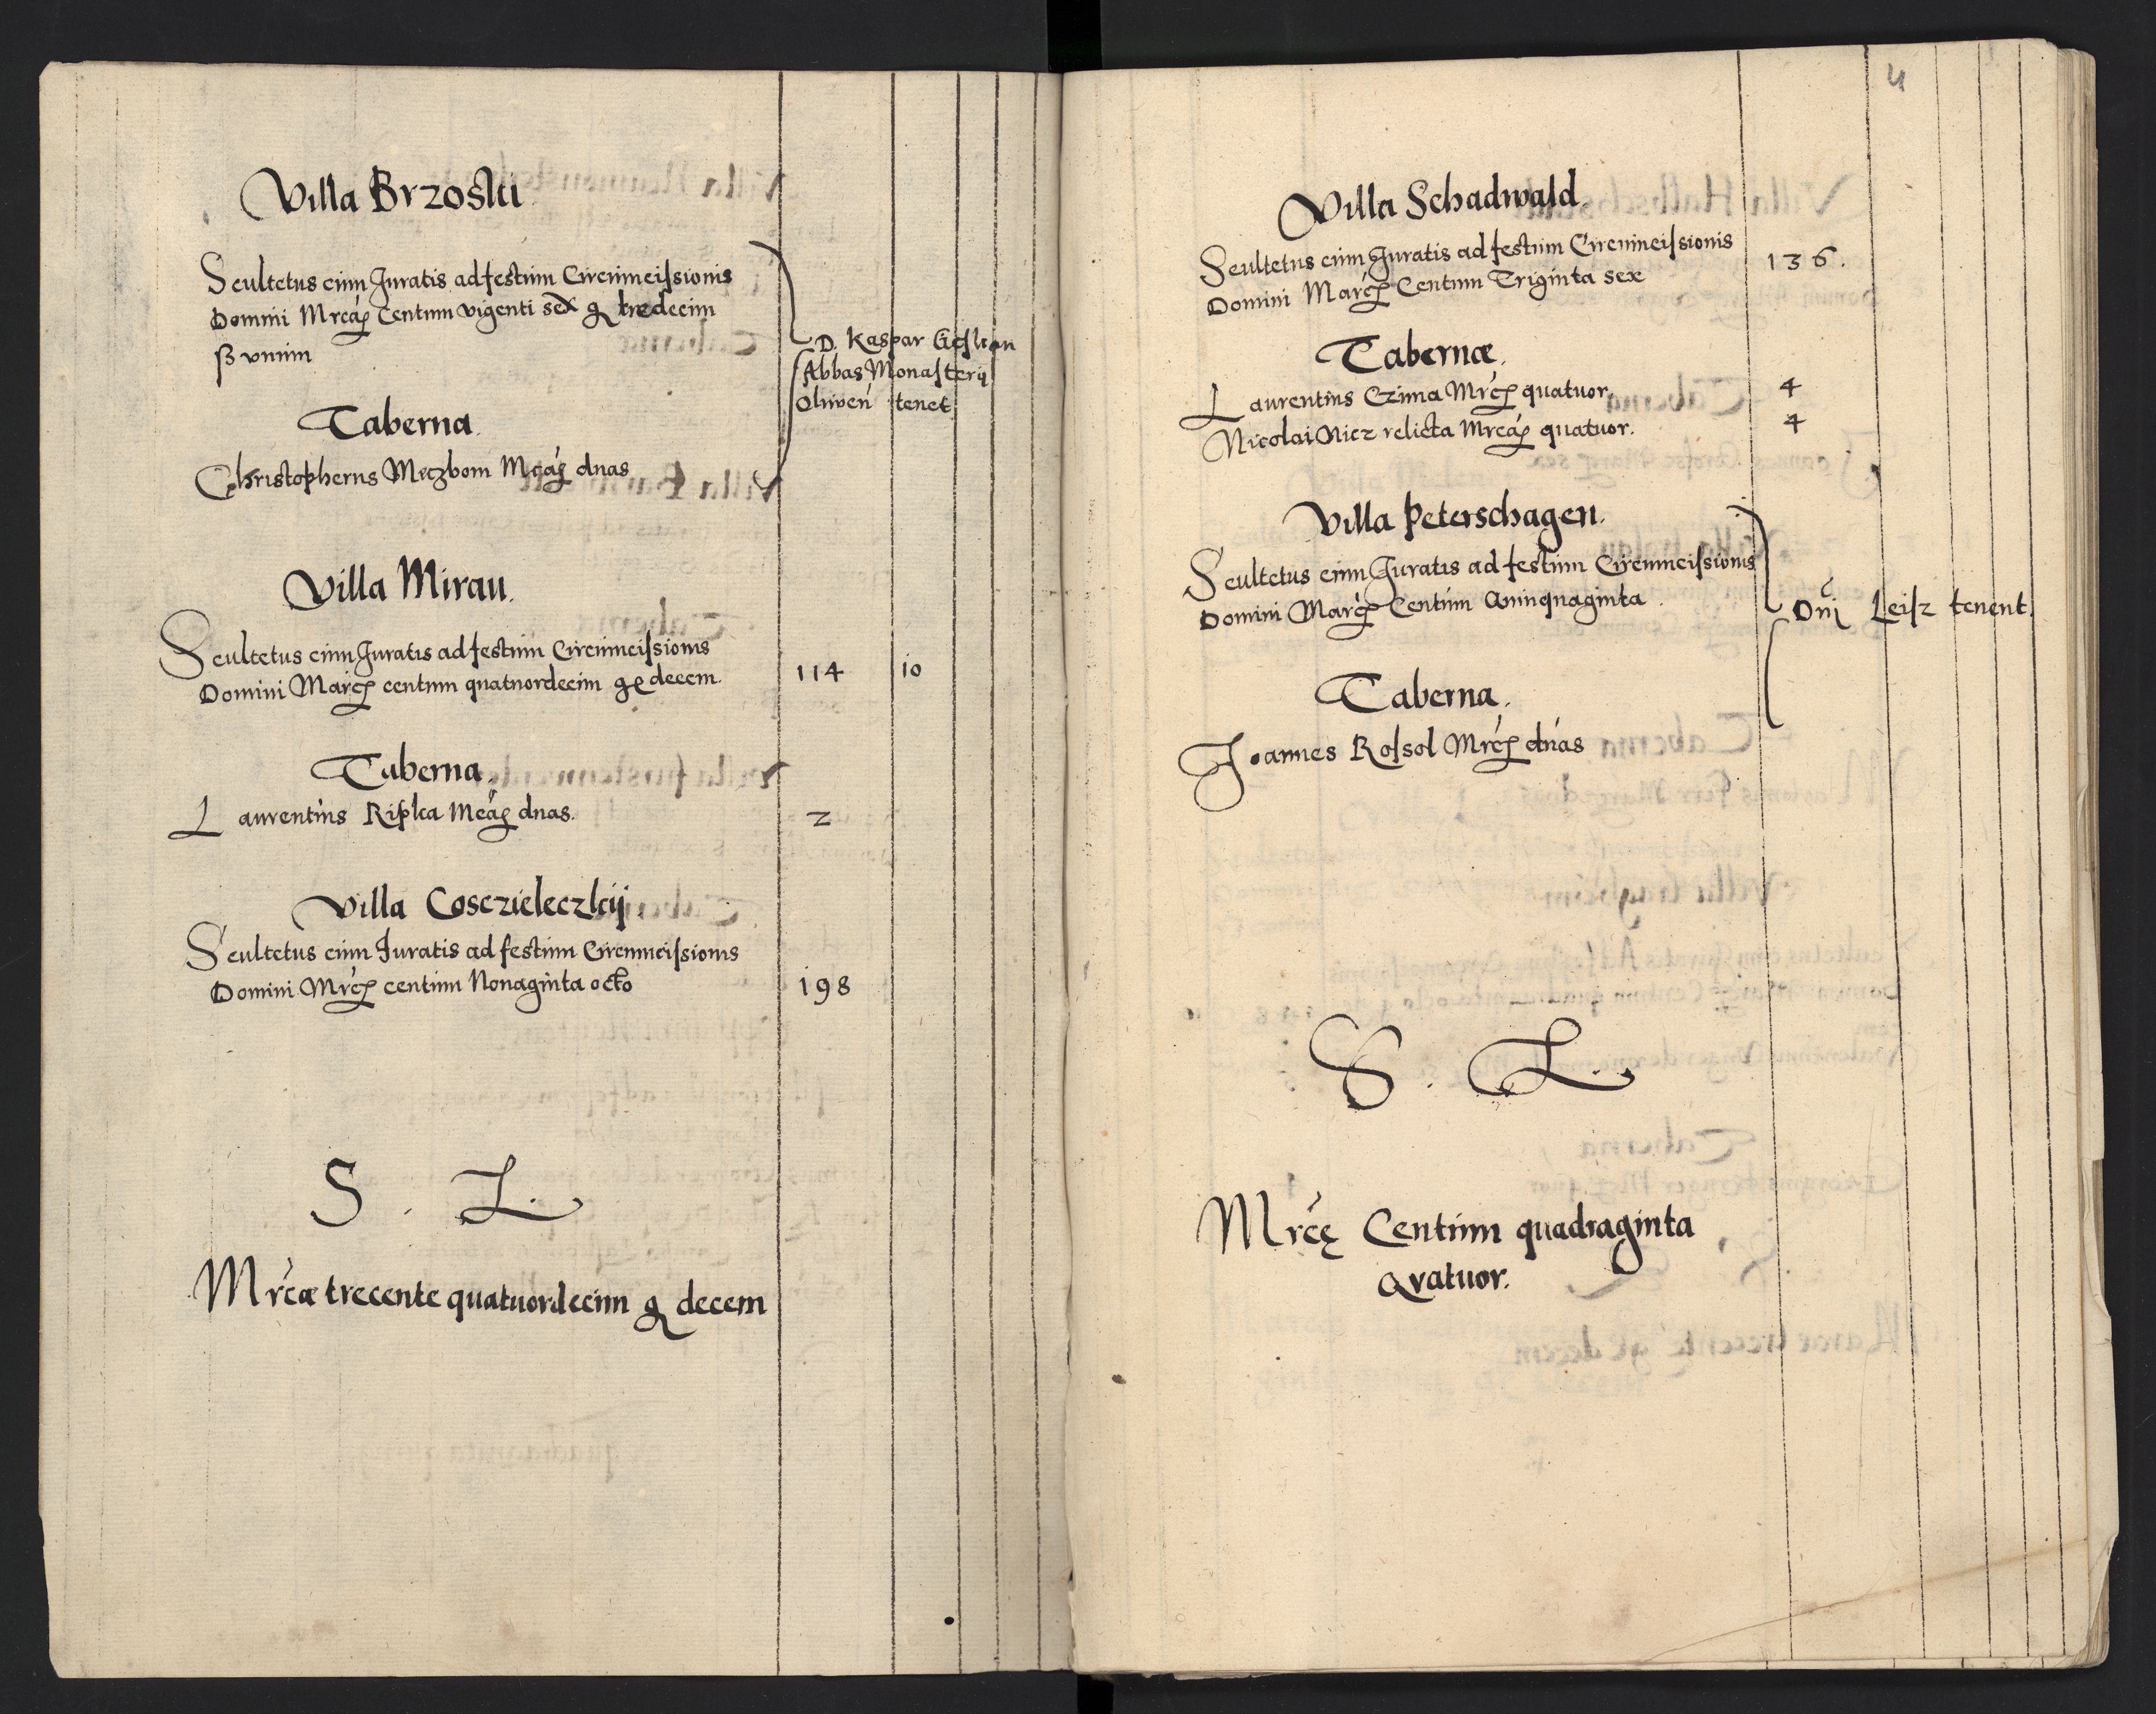 Villa Brzoski
Scultetus cum Juratis ad festum Circumcissionis
Domini Mrcaꝝ Centum vigenti sex gͦ tredecim
ß vnum
D. Kaspar Geslcan
Abbas Monasterij
Oliveń tenet
Taberna.
Christopherus Mezbom Mcaꝝ duas
Villa Mirau.
Scultetus cum Juratis ad festum Circumcissionis
Domini Marcꝝ centum quatuordecim gͦ decem. 114 10
Taberna.
Laurentius Ripka Mcaꝝ duas. 2
Villa Cosczieleczkij
Scultetus cum Juratis ad festum Circumcissionis
Domini Mrcꝝ centum Nonaginta octo 198
S. L.
Mrcæ trecente quatuordecim g decem
4
Villa Schadwald.
Scultetus cum Juratis ad festum Circumcissionis
Domini Marcꝝ Centum Triginta sex 136.
Tabernæ.
Laurentius Czima Mrcꝝ quatuor. 4
Nicolai Nicz relicta Mrcaꝝ quatuor. 4
Villa Peterschagen.
Scultetus cum Juratis ad festum Circumcissionis
Domini Marcꝝ Centum Quinquaginta
Dnī Leisz tenent.
Taberna.
Joannes Rossol Mrcꝝ duas
S. L.
Mrcę Centum quadraginta
Qvatuor.